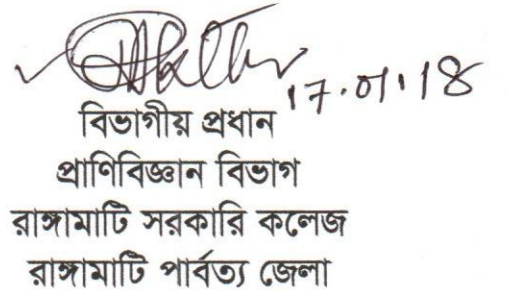 17.01.18
বিভাগীয় প্রধান
প্রাণিবিজ্ঞান বিভাগ
রাঙ্গামাটি সরকারি কলেজ
রাঙ্গামাটি পার্বত্য জেলা